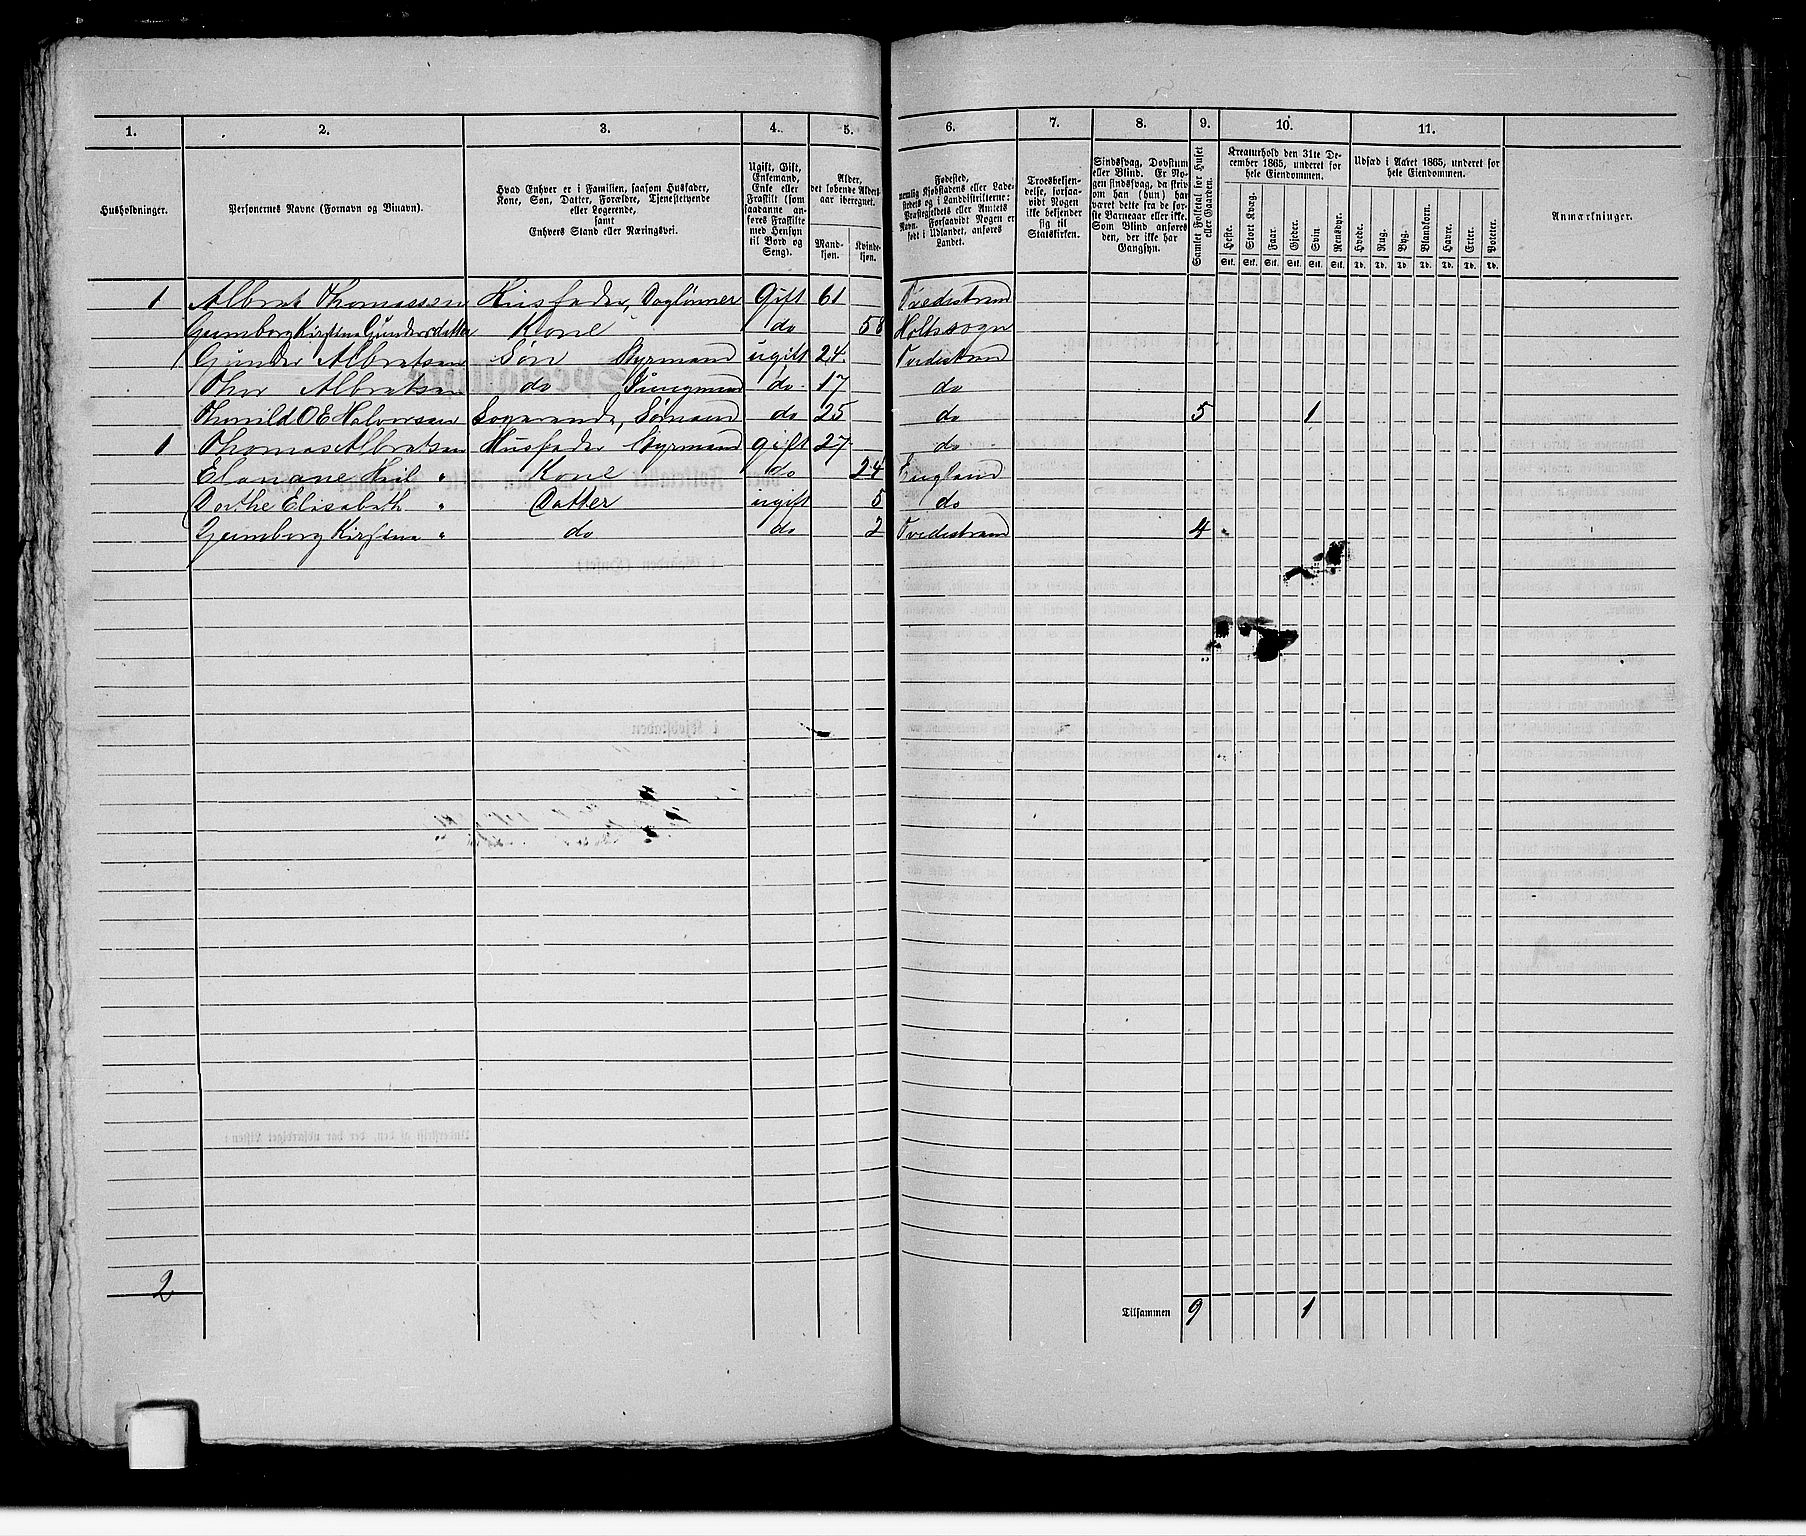 1. 2. 3. 4. 5. 6. 7. 8. 9. 10. 11.
Husholdninger.
Personernes Navne (Fornavn og Binavn).
Hvad Enhver er i Familien, saasom Husfader, Kone, Søn, Datter, Forældre, Tjenestetyende eller Logerende,
samt
Enhvers Stand eller Næringsvei.
Ugift, Gift, Enkemand, Enke eller Fraskilt (som saadanne anføres med Hensyn til Bord og Seng).
Alder, det løbende Alders-aar iberegnet.
Mand-kjøn. Kvinde-kjøn.
Fødested, nemlig Kjøbstadens eller Ladestedets og i Landdistrikterne: Præstegjeldets eller Amtets Navn. Forsaavidt Nogen er født i Udlandet, anføres Landet.
Troesbekjendelse, forsaavidt Nogen ikke bekjender sig til Statskirken.
Sindssvag, Døvstum eller Blind. Er Nogen sindssvag, da skrives om han (hun) har været dette fra de første Barneaar eller ikke. Som Blind anføres den, der ikke har Gangsyn.
Samlet Folketal for Huset eller Gaarden.
Kreaturhold den 31te December 1865, underet for hele Eiendommen.
Heste. Stort Kvæg. Faar. Gjeder. Svin Rensdyr.
Stk. Stk. Stk. Stk. Stk. Stk.
Udsæd i Aaret 1865, underet for hele Eiendommen.
Hvede. Rug. Byg. Blandkorn. Havre. Erter. Poteter.
Td. Td. Td. Td. Td. Td. Td.
Anmærkninger.
1 Albrat Thomassen Husfader, Dagl&oslash;nner Gift 61 Tvedestrand
Gumborg Kirstine Gundersdatter Kone do 58 Holts sogn
Gunder Albratsen Søn Styrmand ugift 24 Tvedestrand
Thor Albratsen do Jungmand do 17 do
O E Halvorsen Logerande, Sømand do 25 do 5 1
1 Thomas Albratsen Husfader Styrmand gift 27 do
Kone do 24 England
Dorthe Elisabeth " Datter ugift 5 do
Gumborg Kirstine " do do 2 Tvedestrand 4
2 Tilsammen 9 1